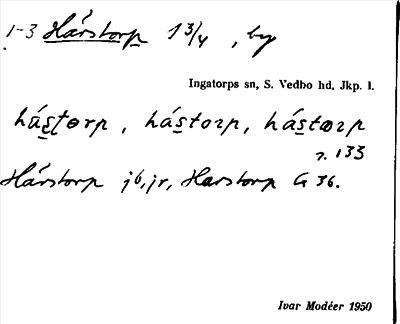 1-3 Hárstorp 1 3/4, by
Ingatorps sn, S. Vedbo hd, Jkp. l.
hás̱torp, hás̱torp, hás̱tærp
r. 133
Hárstorp jb, jr, Harstorp G 36.
Ivar Modéer 1950